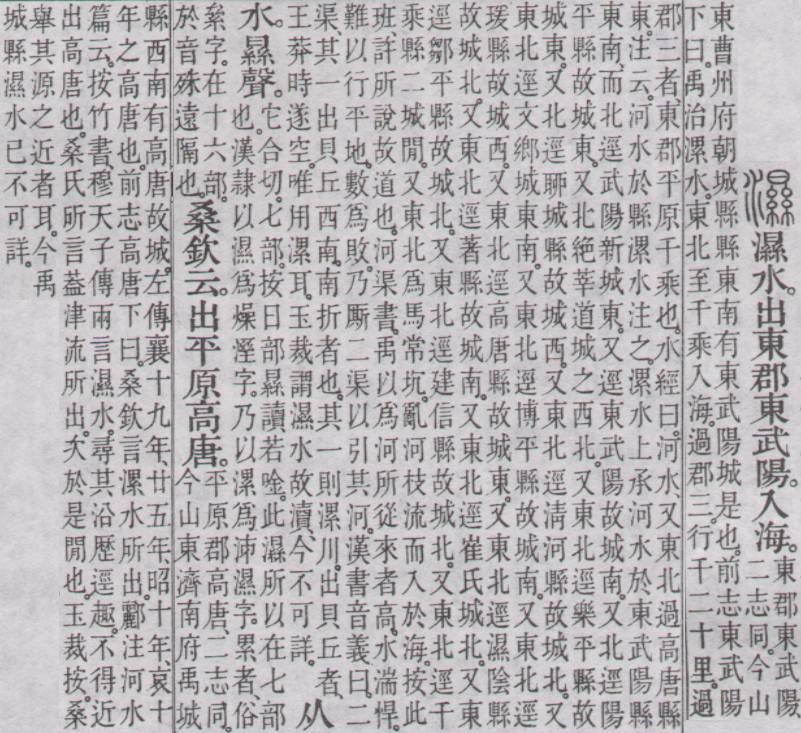 濕 濕水。出東郡東武陽。入海。
東郡東武陽、
二志同。今山
東曹州府朝城縣縣東南有東武陽城是也。前志東武陽
下曰。禹治漯水。東北至千乘入海。過郡三。行千二十里。過
郡三者、東郡平原千乘也。水經曰。河水、又東北過高唐縣
東。注云。河水於縣漯水注之。漯水上承河水於東武陽縣
東南、而北逕武陽新城東。又逕東武陽故城南。又北逕陽
平縣故城東。又北絕莘道城之西北。又東北逕樂平縣故
城東。又北逕聊城縣故城西。又東北逕淸河縣故城北。又
東北逕文鄉城東南。又東北逕博平縣故城南。又東北逕
瑗縣故城西。又東北逕高唐縣故城東。又東北逕濕陰縣
故城北。又東北逕著縣故城南。又東北逕崔氏城北。又東
逕鄒平縣故城北。又東北逕建信縣故城北。又東北逕千
乘縣二城閒。又東北爲馬常坑。亂河枝流而入於海。按此
班、許所說故道也。河渠書。禹以爲河所從來者高。水湍悍。
難以行平地。數爲敗。乃厮二渠以引其河。漢書音義曰。二
渠、其一出貝丘西南南折者也。其一則漯川。出貝丘者、
王莽時遂空。唯用漯耳。玉裁謂濕水故瀆、今不可詳。
从
水。㬎聲。
它合切。七部。按日部㬎讀若唫。此濕所以在七部
也。漢隸以濕爲燥溼字。乃以漯爲沛濕字。累者、俗
絫字。在十六部。
於音殊遠隔也。
桑欽云。出平原高唐。
平原郡高唐、二志同。
今山東濟南府禹城
縣西南有高唐故城。左傳襄十九年、廿五年、昭十年、哀十
年之高唐也。前志高唐下曰。桑欽言漯水所出。酈注河水
篇云。按竹書穆天子傳兩言濕水。尋其沿歷逕趣。不得近
出高唐也。桑氏所言葢津流所出、㳄於是閒也。玉裁按。桑
舉其源之近者耳。今禹
城縣濕水已不可詳。